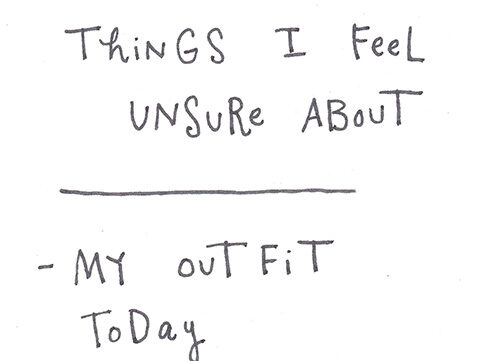 THiNGS I FeeL
UNSuRe ABOUT
- MY OuTFiT
ToDay